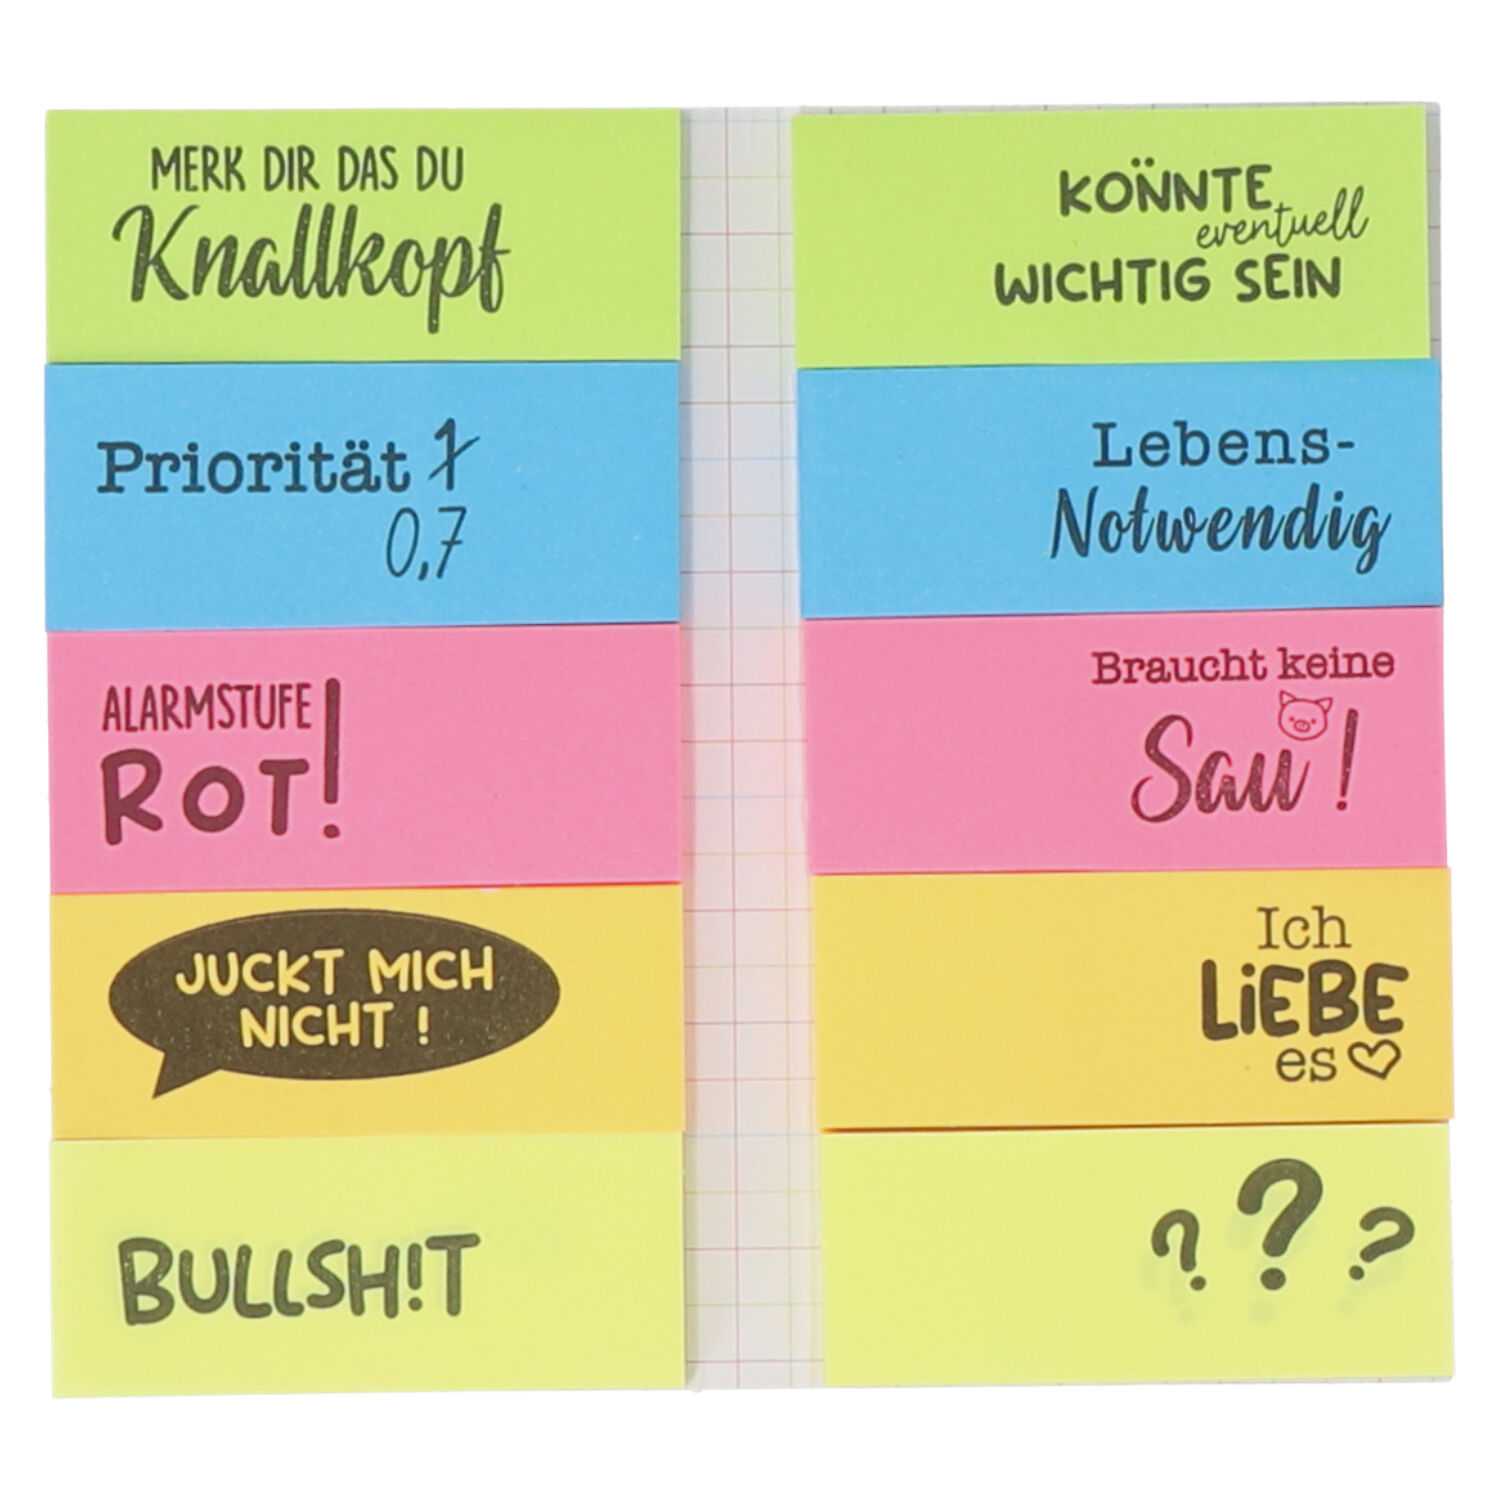 MERK DIR DAS DU
Knallkopf
Priorität 1
0,7
ALARMSTUFE
ROT!
JUCKT MICH
NICHT !
BULLSH!T
KÖNNTE
eventuell
WICHTIG SEIN
Lebens-
Notwendig
Braucht keine
Sau !
Ich
LiEBE
es
? ? ?